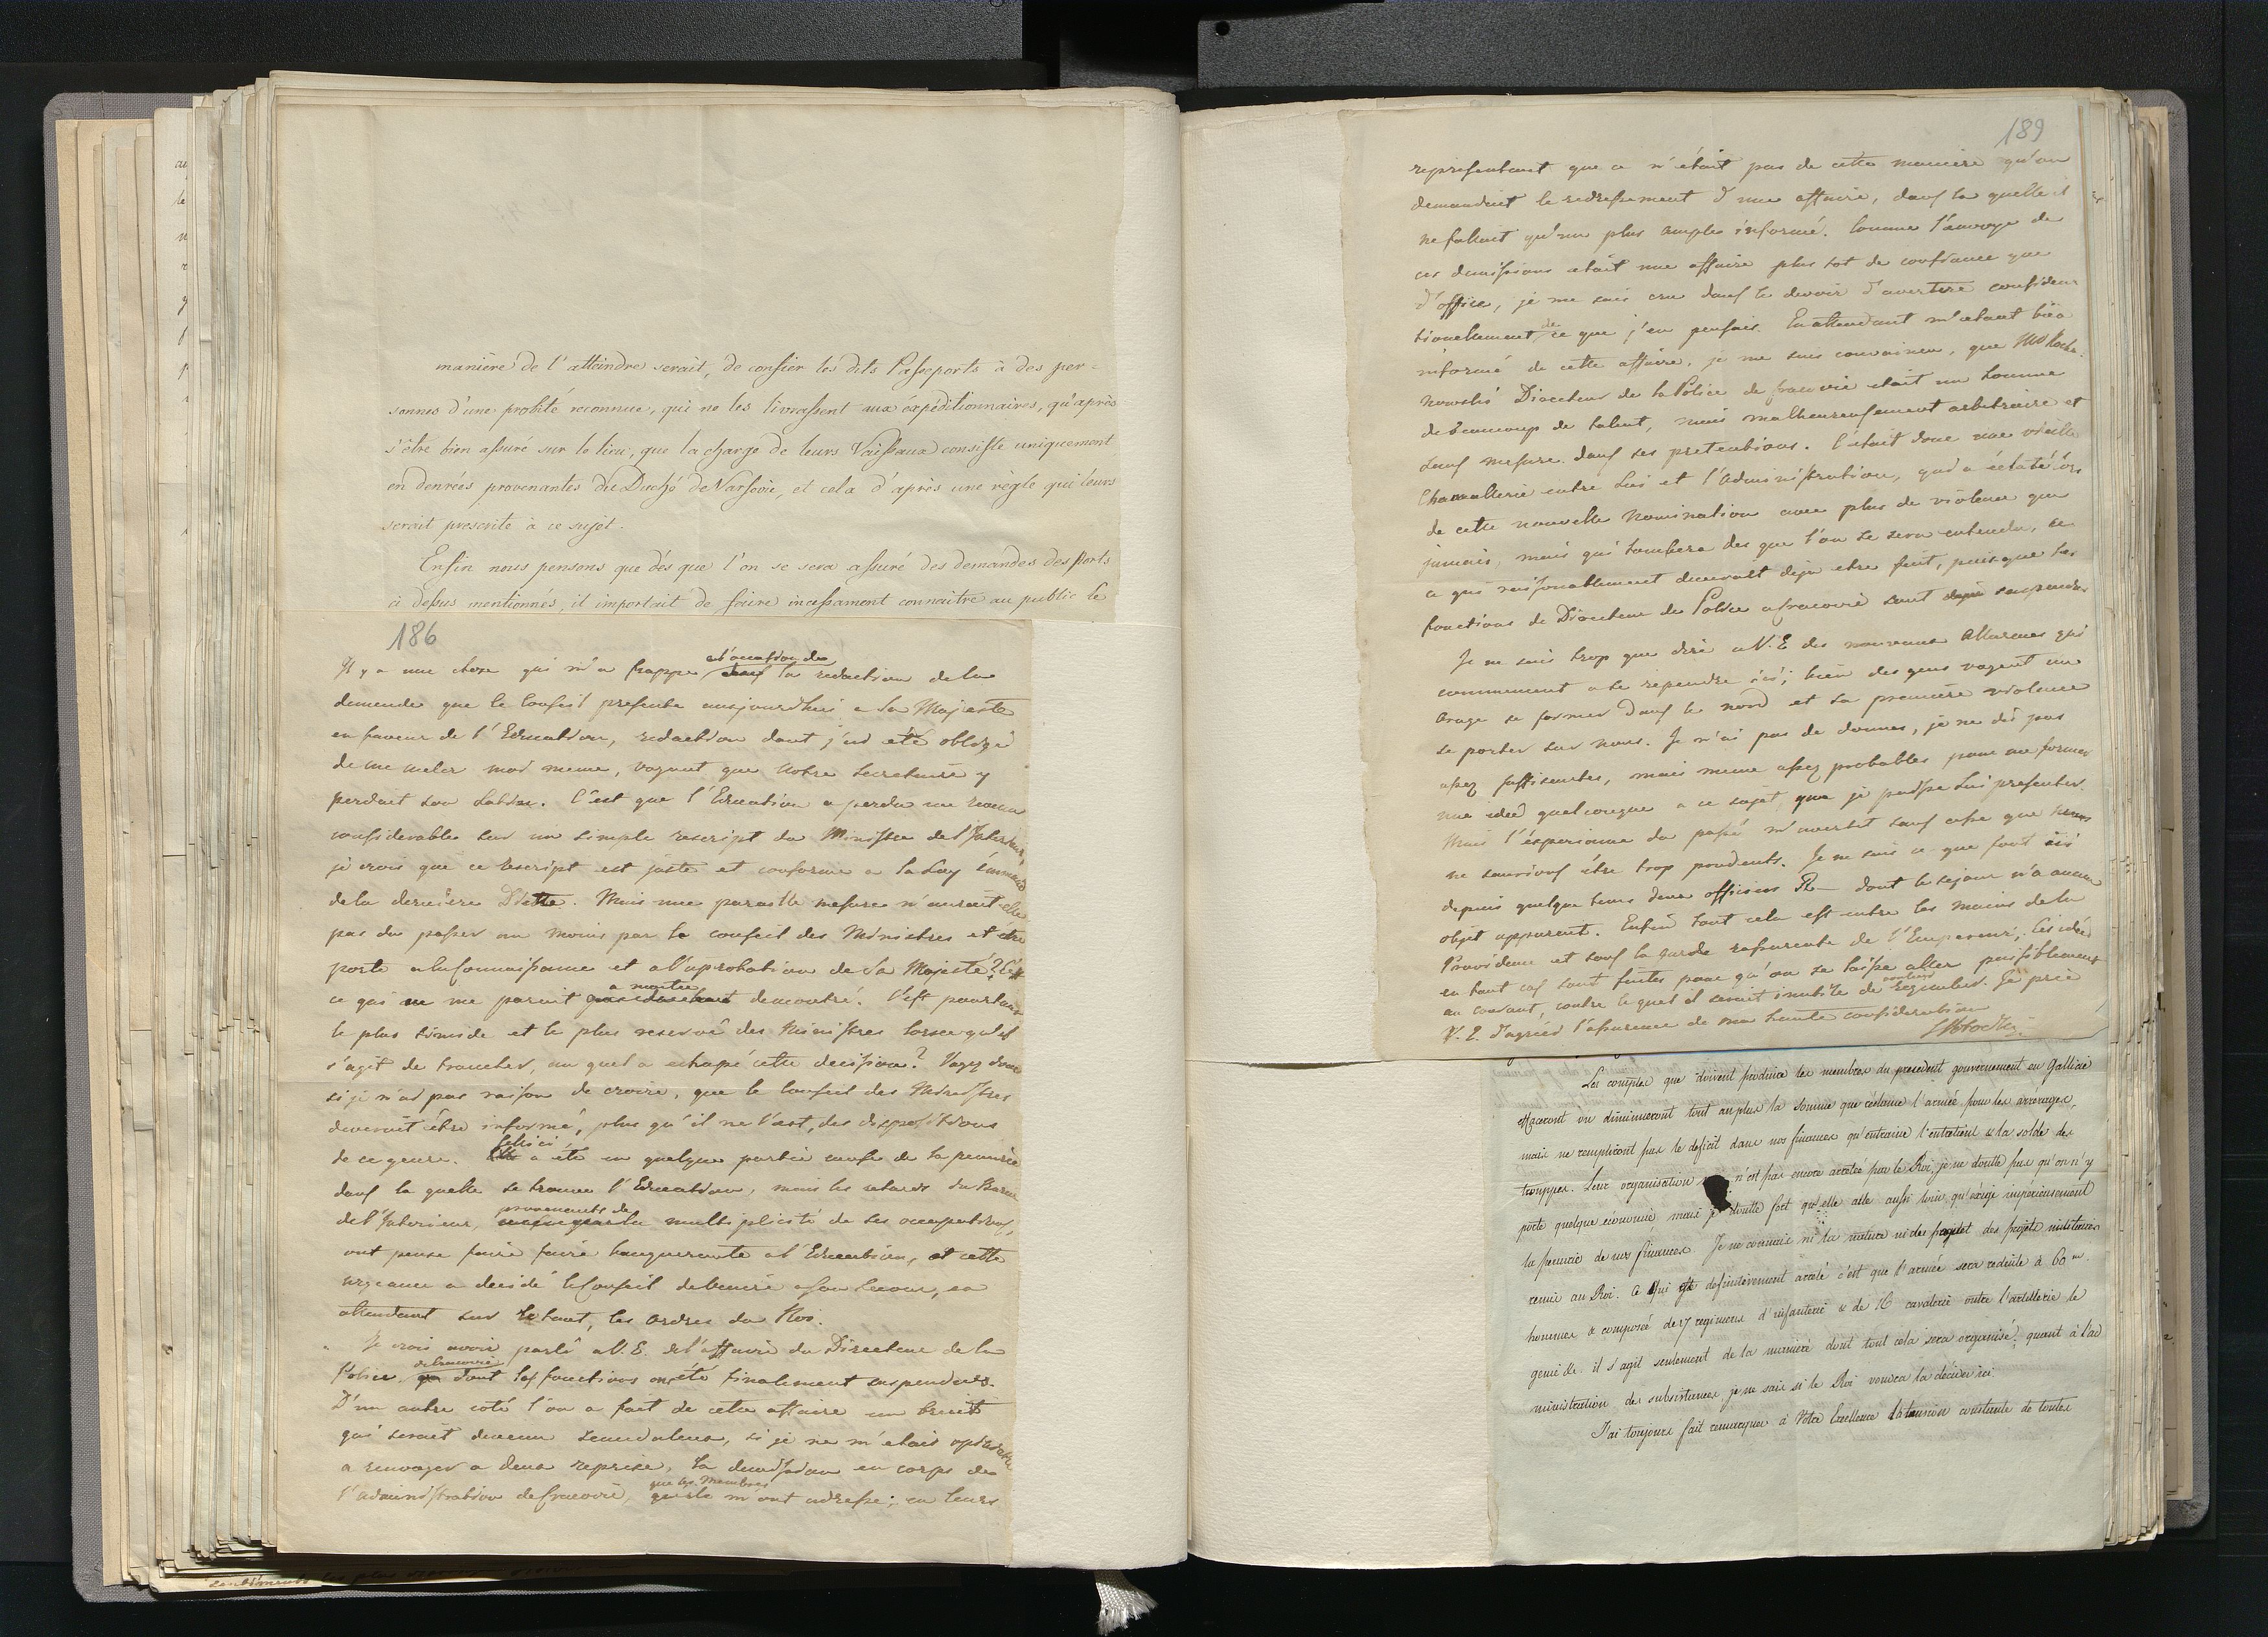 manière de l'atteindre serait, de confier les dits Passeports à des per-
sonnes d'une probité reconnue, qui ne les livrassent aux expéditionnaires, qu'après
s'être bien assuré sur le lieu, que la charge de leurs Vaisseaux consiste uniquement
en denrées provenantes du Duché de Varsovie, et cela d'après une règle qui leurs
serait prescrite à ce sujet.
Enfin nous pensons que dès que l'on se sera assuré des demandes des ports
ci dessus mentionnés, il importait de faire incessament connaitre au public le
186
Il y a une chose qui m'a frappe a l'occasion de la redaction de la
demande que le Conseil presente aujourdhui a Sa Majesté
en faveur de l'Education, redaction dont j'ai été obligé
de me meler moi meme, voyant que notre Secretaire y
perdait son Latin. C'est que l'Education a perdu une somme
considerable sur un simple rescript du Ministre de l'Interieur,
je crois que ce rescript est juste et conforme a la Loy
de la derniere Diette. Mais une pareille mesure n'aurait elle
pas du passer au moins par le conseil des Ministres et etre
porte a la connaissance et a l'aprobation de Sa Majesté? C'est
ce qui me parait a montrer demontré. C'est pourtant
le plus timide et le plus reservé des Ministres lorsqu'il
s'agit de trancher, au quel a echapé cette decision? Voyez donc
si je n'ai pas raison de croire, que le Conseil des Ministres
devrait être informé, plus qu'il ne l'est, des dispositions
de ce genre. Celle ci a été en quelque partie cause de la penurie
dans la quelle se trouve l'Education, mais les retards du Bureau
de l'Interieur, provenants de la multiplicité de ses occupations,
ont pensé faire faire banqueroute a l'Education, et cette
urgeance a decidé le Conseil de venir a son secour, en
attendant sur le tout, les ordres du Roi.
Je crois avoir parlé a V. E. de l'affaire du Directeur de la
Police de Cracovie dont les fonctions ont été finalement suspendues.
D'un autre coté l'on a fait de cette affaire un bruit
qui serait devenu scandaleux, si je ne m'etais
a renvoyer a deux reprise, la demission en corps de
l'administration de Cracovie, que les Membres m'ont adressé; en leurs
189
representant que ce n'était pas de cette maniere qu'on
demandait le redressement d'une affaire, dans la quelle il
ne fallait qu'un plus ample informé. Comme l'envoye de
ces demissions etait une affaire plus tot de confiance que
d'office, je me suis cru dans le devoir d'avertire confiden
tionellement de ce que j'en pensais. En attendant m'etant bien
informé de cette affaire, je me suis convaincu, que
Directeur de la Police de Cracovie etait un homme
de beaucoup de talent, mais malheureusement arbitraire et
sans mesure dans ses pretentions. C'était donc une vieille
entre lui et l'Administration, qui a éclaté lors
de cette nouvelle Nomination avec plus de violence que
jamais, mais qui tombera des que l'on se sera entendu, ce
ce qui raisonablement devrait deja etre fait, puisque les
fonctions de Directeur de Police a Cracovie sont deja suspendues
Je ne sais trop que dire a V. E. des nouveaux allarmes qui
commencent a se repandre ici; bien des gens voyent un
orage se former dans le nord et sa premiere violence
se porter sur nous. Je n'ai pas de donnes, je ne dis pas
assez suffisantes, mais meme assez probables pour me former
une idée quelconque a ce sujet, que je puisse lui presenter.
Mais l'experience du passé m'avertit sans cesse que nous
ne saurions être trop prudents. Je ne sais ce que font ici
depuis quelque tems deux officiers R— dont le sejour n'a aucun
objet apparent. Enfin tout cela est entre les mains de la
Providence et sous la garde rassurante de l'Empereur; ces idées
en tout cas sont faites pour qu'on se laisse aller paisiblement
au courant, contre lequel il serait inutile de vouloir regimber. Je prie
V. E. d'agréer l'assurance de ma haute consideration
Les comptes que doivent produire les membres du precedent gouvernement en Gallicie
effaceront ou diminueront tout au plus la somme que réclame l'armée pour les arrerages,
mais ne rempliront pas le deficit dans nos finances qu'entraine l'entretient & la solde des
trouppes. Leur organisation n'est pas encore arretée par le Roi, je ne doutte pas qu'on n'y
porte quelque économie mais je doutte fort qu'elle aille aussi loin, qu'exige impérieusement
la penurie de nos finances. Je ne connais ni la nature ni des projet des projets militaires
remis au Roi. Ce qui est definitivement arreté c'est que l'armée sera reduite à 60 m
hommes & composée de 17 regimens d'infanterie & de 16 cavalerie outre l'artillerie le
genie &c. il s'agit seulement de la maniere dont tout cela sera organisé, quant à l'ad
ministration des subsistances, je ne sais si le Roi voudra la décider ici.
J'ai toujours fait remarquer à Votre Excellence la tension constante de toutes